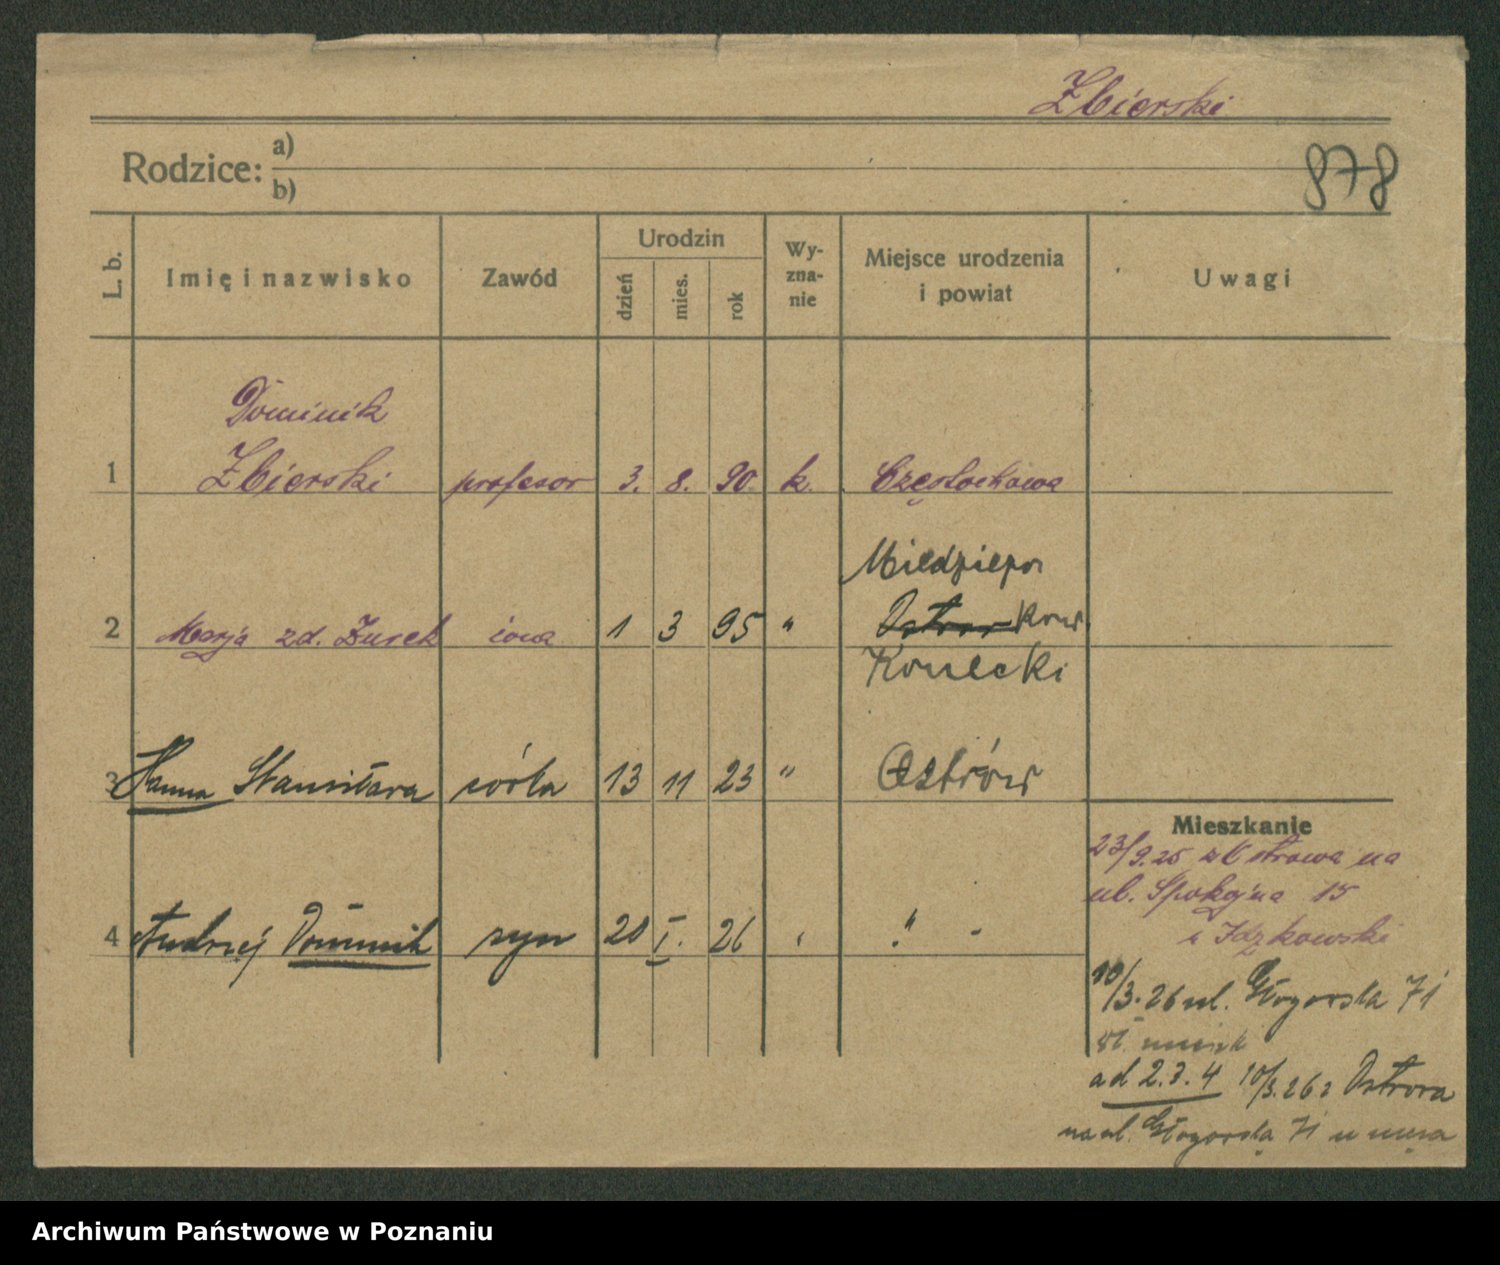 Zbierski
Rodzice: a)
b)
878
L. b.
Imię i nazwisko
Zawód
Urodzin
dzień
mies.
rok
Wy-
zna-
nie
Miejsce urodzenia
i powiat
Uwagi
Dominik
1 Zbierski profesor 3. 8. 90 k. Częstochowa
2 Marja zd. Żurek żona 1 3 95 "
Konecki
3 Hanna Stanisława córka 13 11 23 " Ostrów
4 Andrzej Dominik syn 20 I. 26 " -
Mieszkanie
23/9.25 z Ostrowa na
ul. Spokojna 15
Idzkowski
10/3.26 ul. Głogowska 71
ad 2.3.4 10/3.26 z Ostrowa
na ul. Głogowską 71 u męża
Archiwum Państwowe w Poznaniu